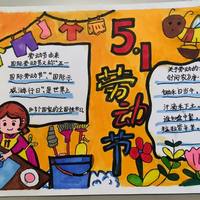 5.1
劳动节
劳动节由来
国际劳动节又称"五一
国际劳动节","国际示
威游行日",是世界上
80多个国家的全国性节日
关于劳动的诗
锄禾日当午
汗滴禾下土
谁知盘中餐
粒粒皆辛苦